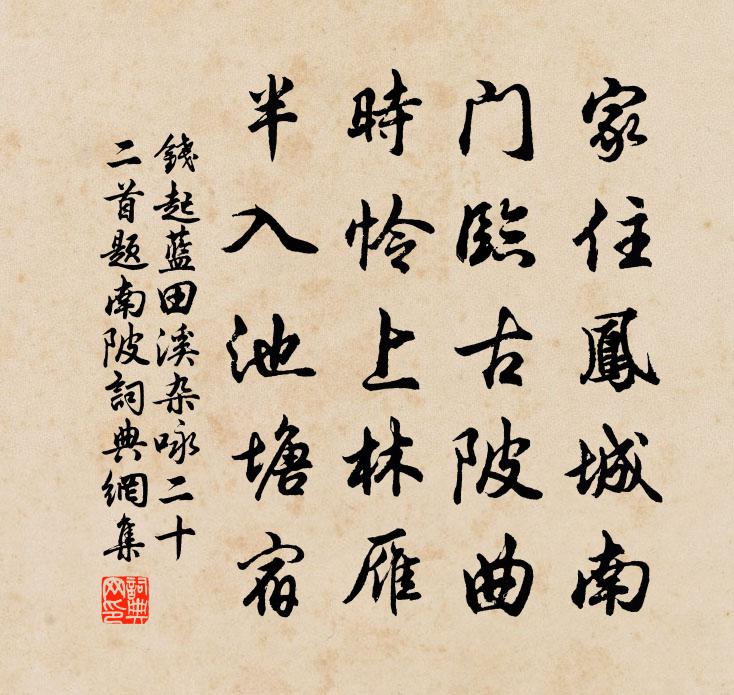 家住鳳城南
門臨古陂曲
時憐上林雁
半入池塘宿
錢起藍田溪杂咏二十
二首题南陂詞典網集
詞典
网印